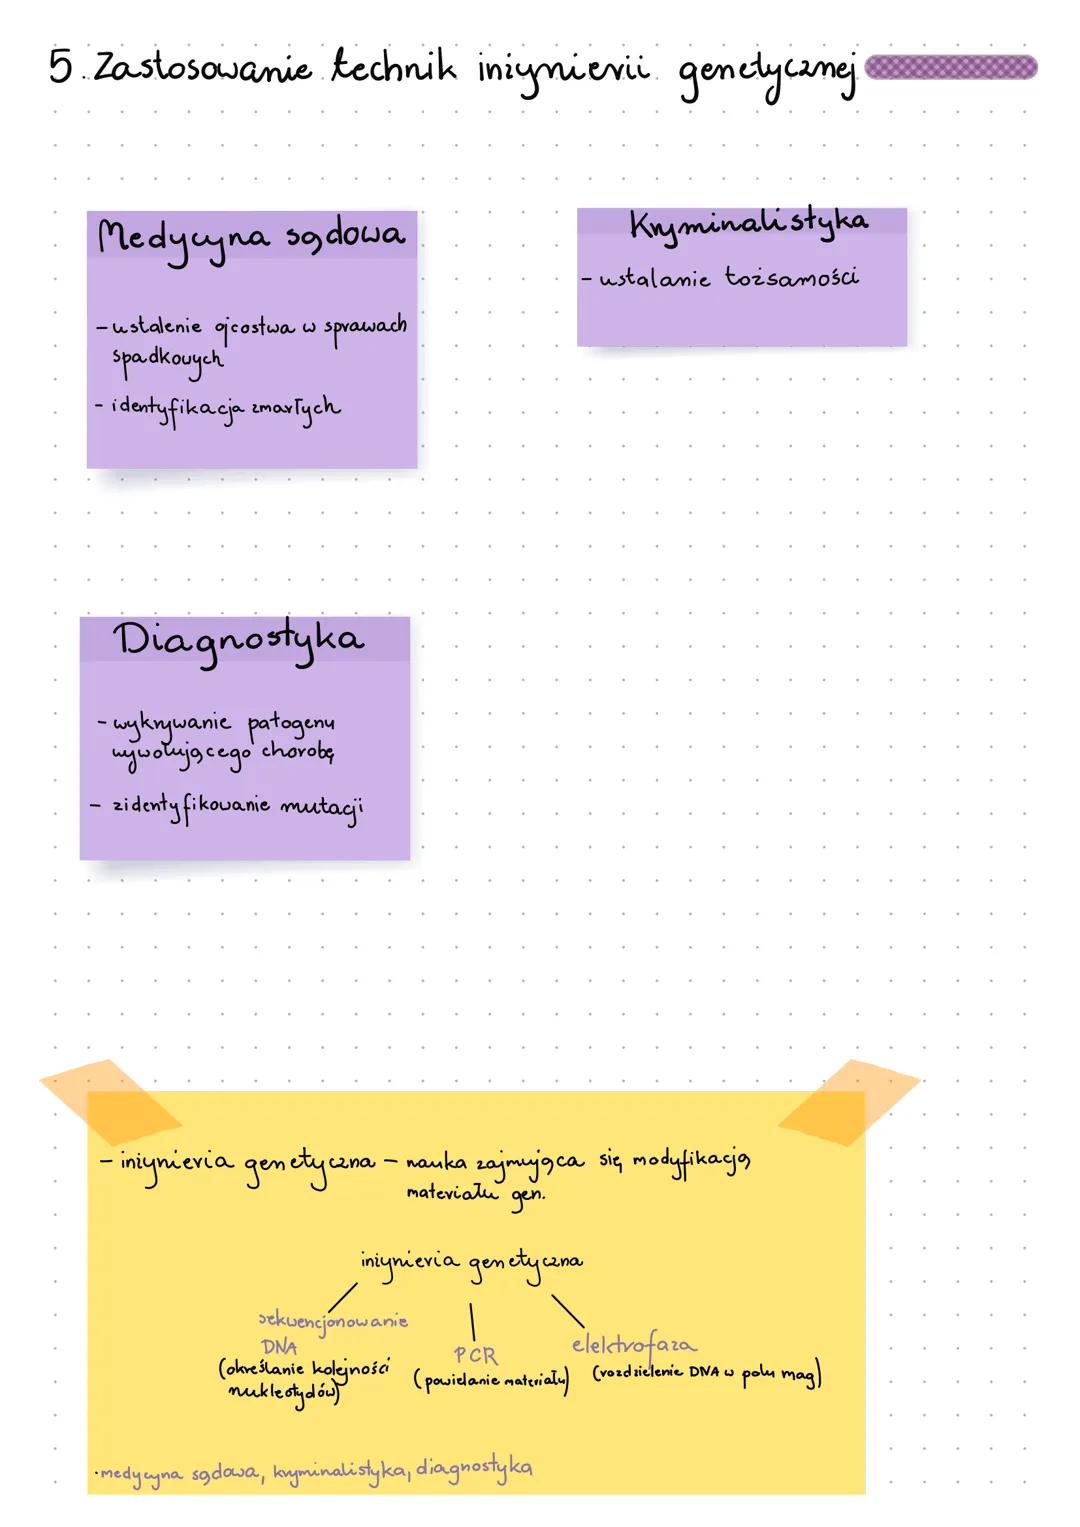 5. Zastosowanie technik inżynierii genetycznej
Medycyna sądowa
- ustalenie ojcostwa w sprawach
spadkowych
- identyfikacja zmarłych
Kryminalistyka
- ustalanie tożsamości
Diagnostyka
- wykrywanie patogenu
wywołującego chorobę
- zidentyfikowanie mutacji
- inżynieria genetyczna - nauka zajmująca się modyfikacją
materiału gen.
inżynieria genetyczna
sekwencjonowanie
DNA
(określanie kolejności
nukleotydów)
PCR
(powielanie materiału)
elektrofaza
(rozdzielenie DNA w polu mag)
·medycyna sądowa, kryminalistyka, diagnostyka